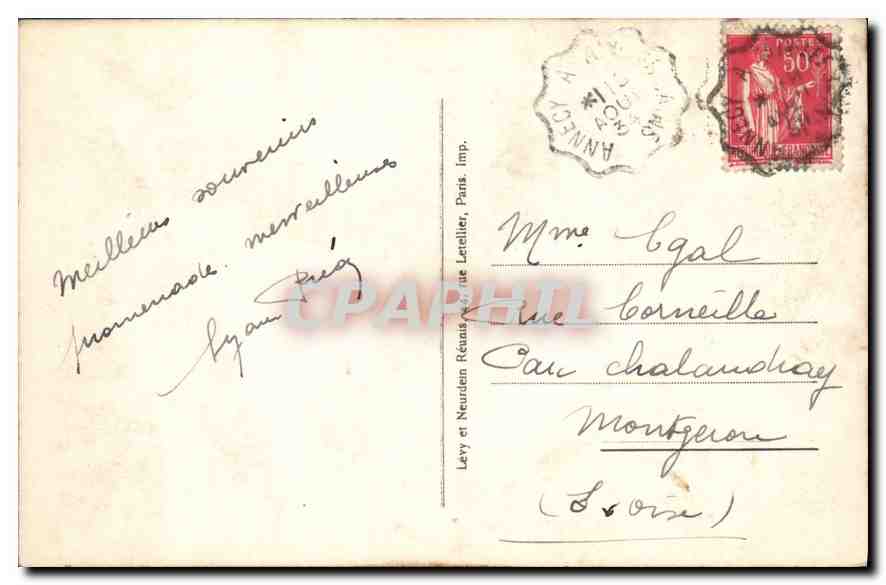 Meilleurs souvenirs
promenade merveilleuse
Lévy et Neurdein Réunis, 44, rue Letellier, Paris. Imp.
ANNECY A
*1
AOUT
34
POSTES
50c
Mme Egal
Rue Corneille
Parc Chalandray
Montgeron
(S. & Oise)
CPAPHIL